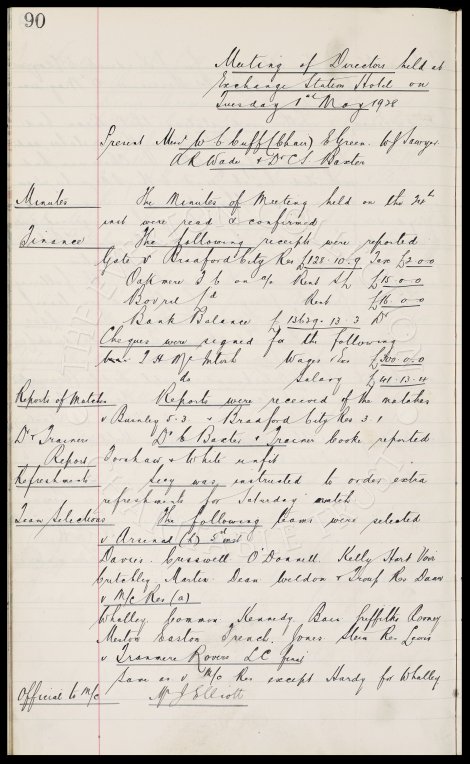 90
Meeting of Directors held at
Exchange Station Hotel on
Tuesday 1st May 1928
Present Messrs W C Cuff (Chair) E Green. W J Sawyer
A R Wade & Dr C S Baxter
Minutes The Minutes of Meeting held on the 24th
inst were read & confirmed
Finance The following receipts were reported
Gate v Bradford City Res £128.10.9 Tax £2.0.0
Oakmere I C on a/c Rent £15.0.0
Bovril Ld Rent £16.0.0
Bank Balance £13629.13.3 Dr
Cheques were signed for the following
T H McIntosh Wages &c £300.0.0
do Salary £41.13.4
Reports of Matches Reports were received of the matches
v Burnley 5.3 v Bradford City Res 3.1
Dr & Trainers Dr C Baxter & Trainer Cooke reported
Report Forshaw & White unfit
Refreshments Secy was instructed to order extra
refreshments for Saturday match
Team Selections The following teams were selected
v Arsenal (h) 5th inst
Davies. Cresswell O'Donnell. Kelly Hart Virr
Critchley. Martin. Dean Weldon & Troup Res Davies
v M/c Res (a)
Whalley. Common Kennedy Bain Griffiths Rooney
Meston Easton French. Jones Stein Res Lewis
v Tranmere Rovers LC final
Same as v M/c Res except Hardy for Whalley
Official to M/c Mr J Elliott